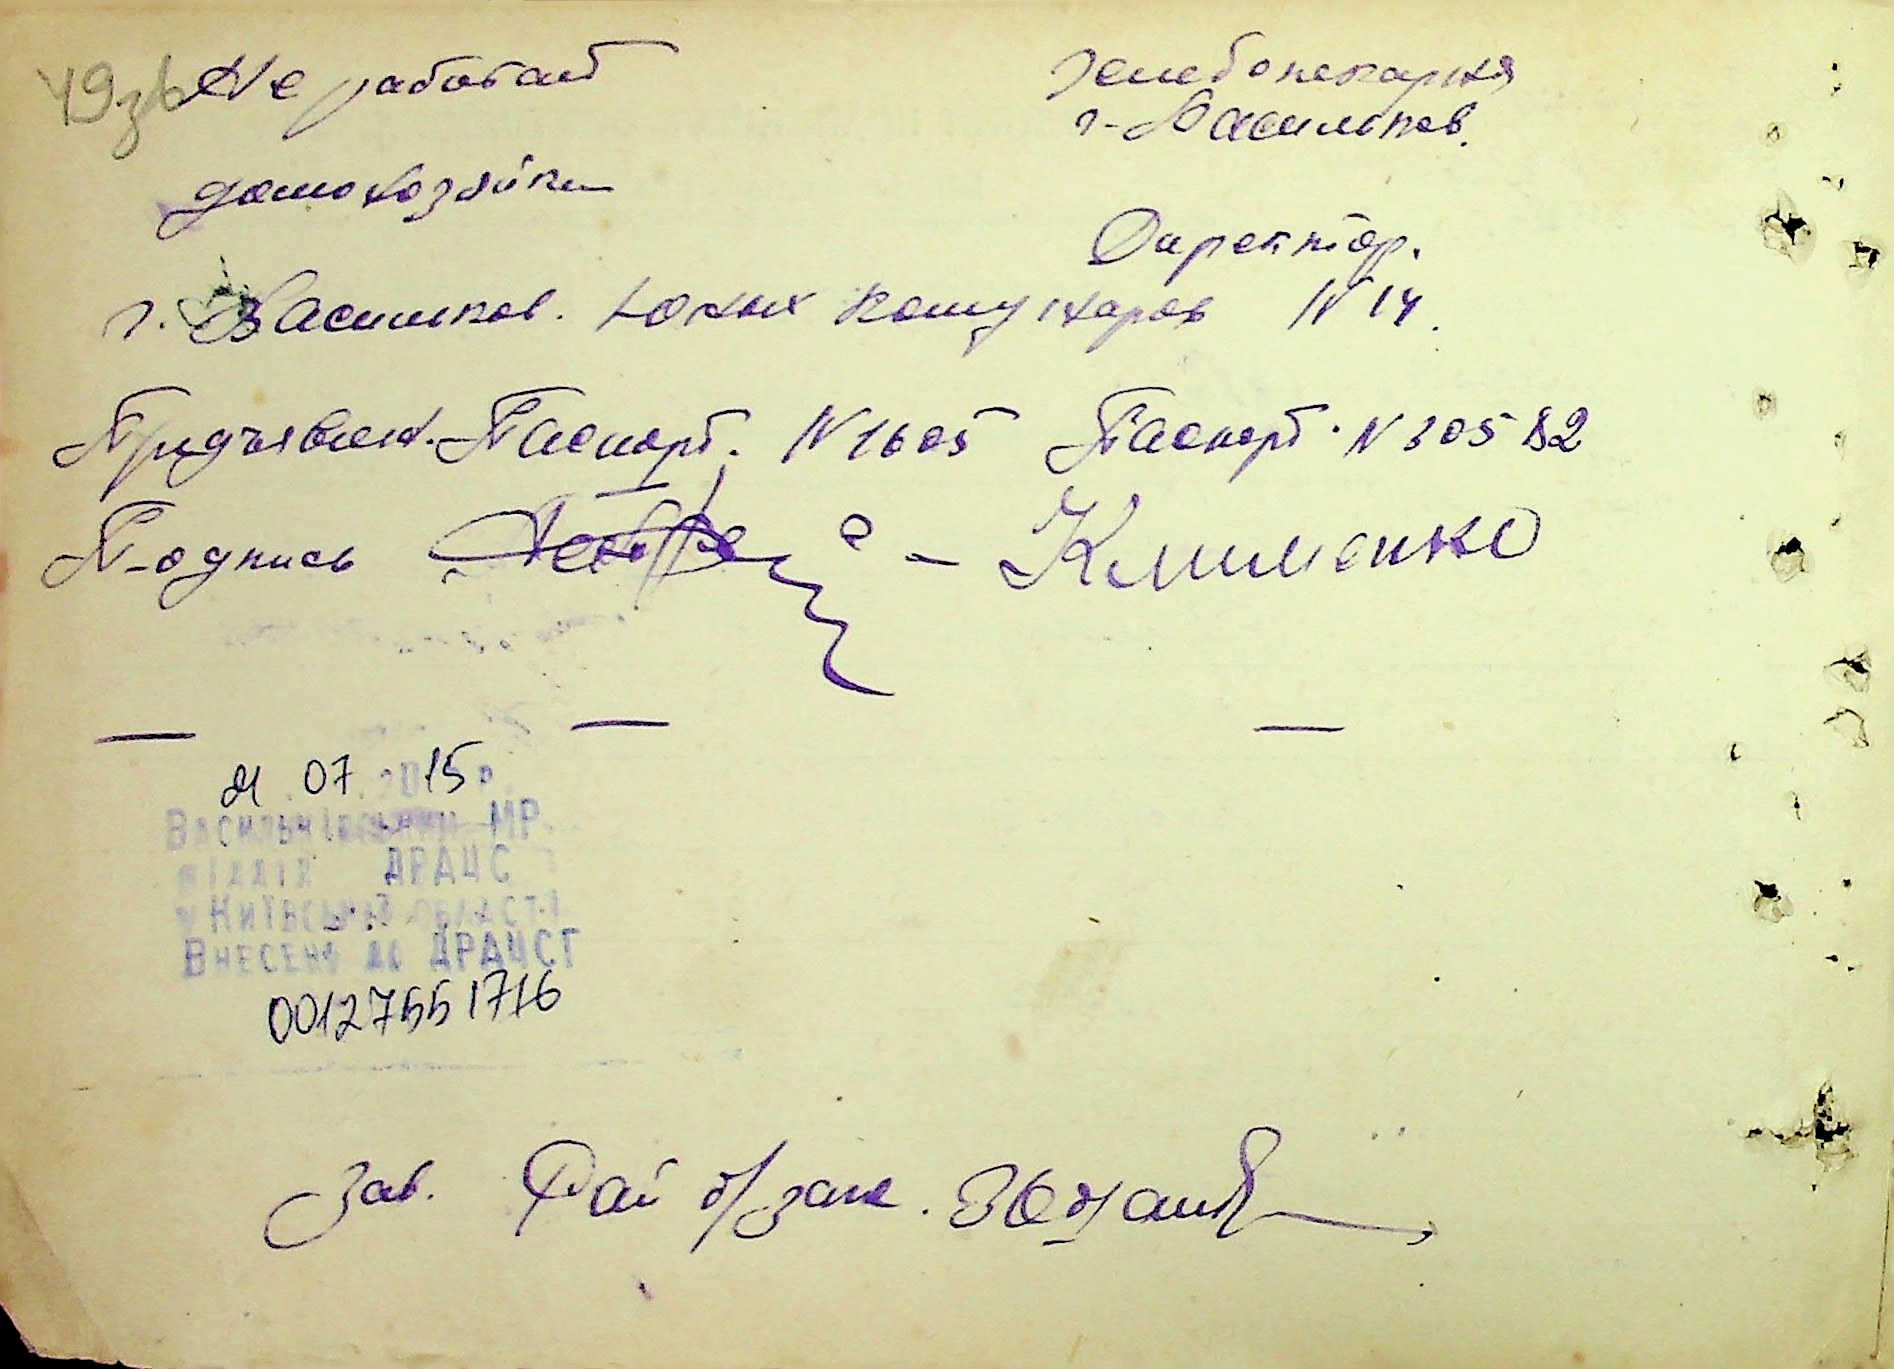 Не работает Хлебопекарня
г. Васильков.
домохозяйка
Директор.
г. Васильков. Юных Коммунаров N 14.
Предъявлен. Паспорт. N 1605 Паспорт. N 30582
Подпись Клименко
21 07 2015 р.
Васильківський МР
відділ ДРАЦС
у Київській області
Внесено до ДРАЦСГ
00127551716
Зав. Рай б/загс.